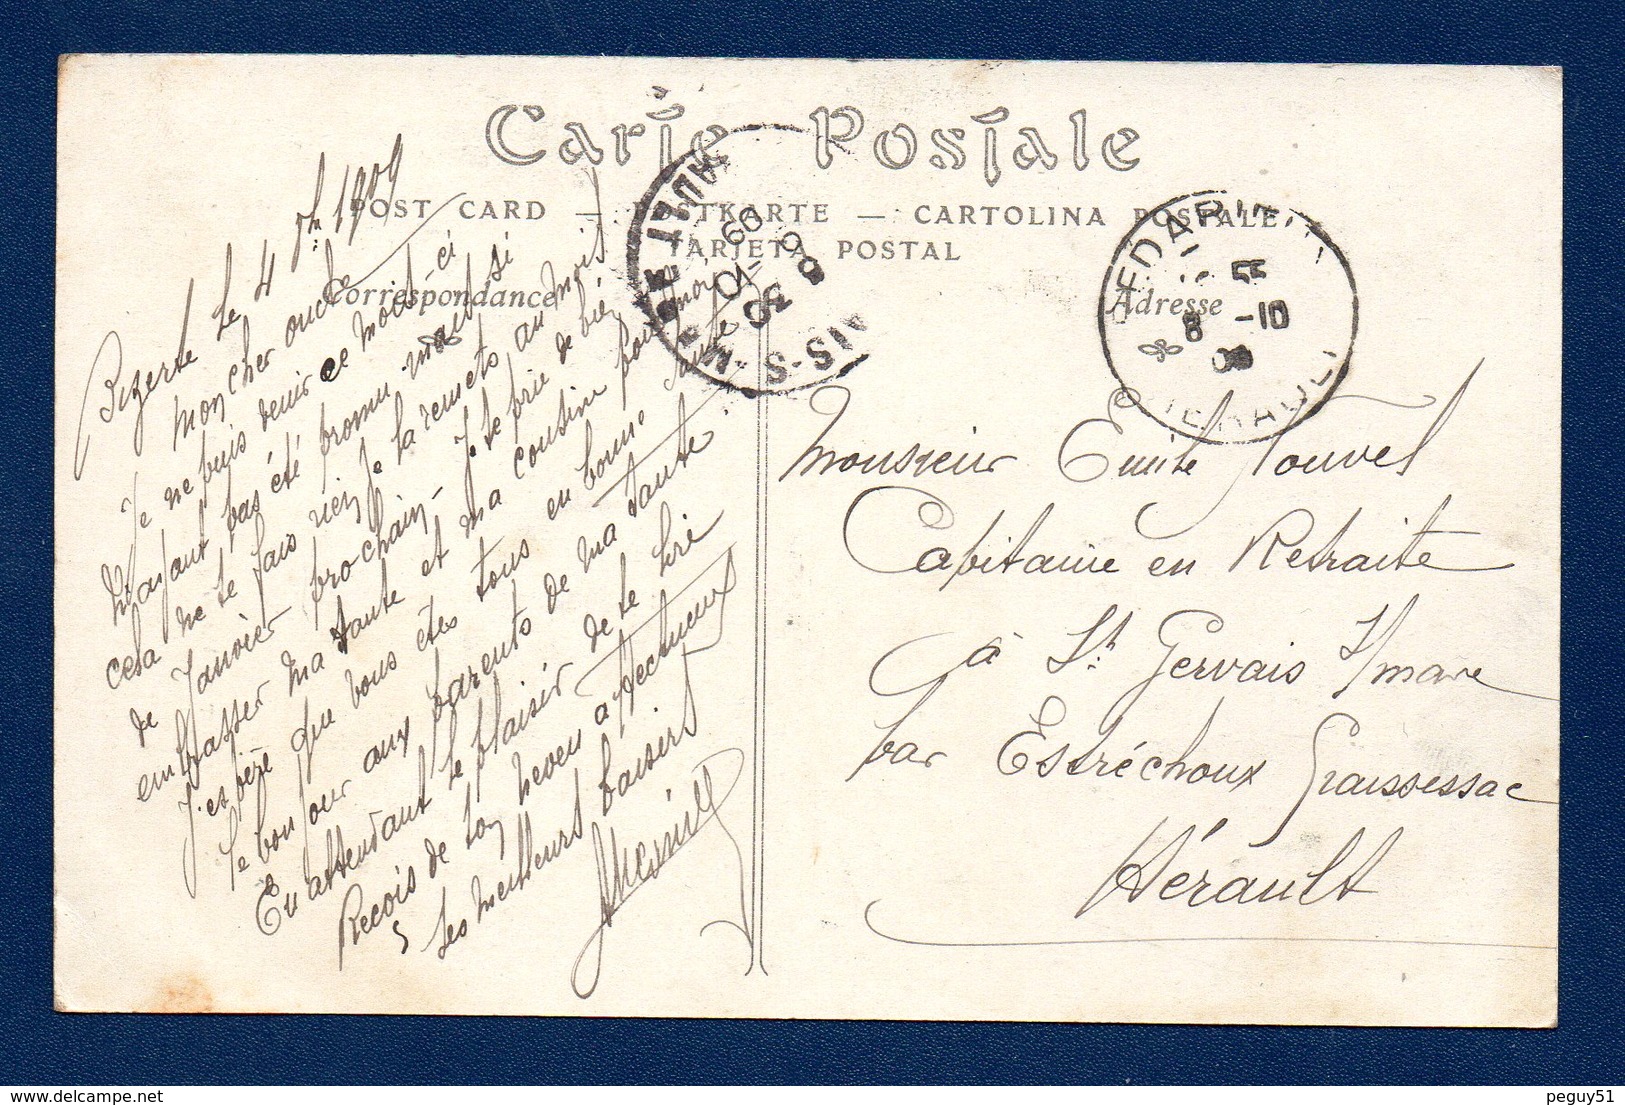 Carte Postale
POST CARD — POSTKARTE — CARTOLINA POSTALE
TARJETA POSTAL
Correspondance
Adresse
Bizerte le 4 1909
Mon cher oncle
Je ne puis venir ce mois-ci
n'ayant pas été promu mais si
cela ne te fais rien je la remets au mois
de Janvier prochain - Je te prie de bien
embrasser ma tante et ma cousine pour moi
J'espère que vous êtes tous en bonne santé
le bonjour aux parents de ma tante
En attendant le plaisir de te lire
Recois de ton neveu affectueux
les meilleurs baisers
BEDARIEUX
HERAULT
8 -10
ST-GERVAIS-S-MARE
HERAULT
8 -10
09
Monsieur Emile Jouvel
Capitaine en Retraite
à St Gervais s/mare
par Estréchoux Graissessac
Hérault
peguy51